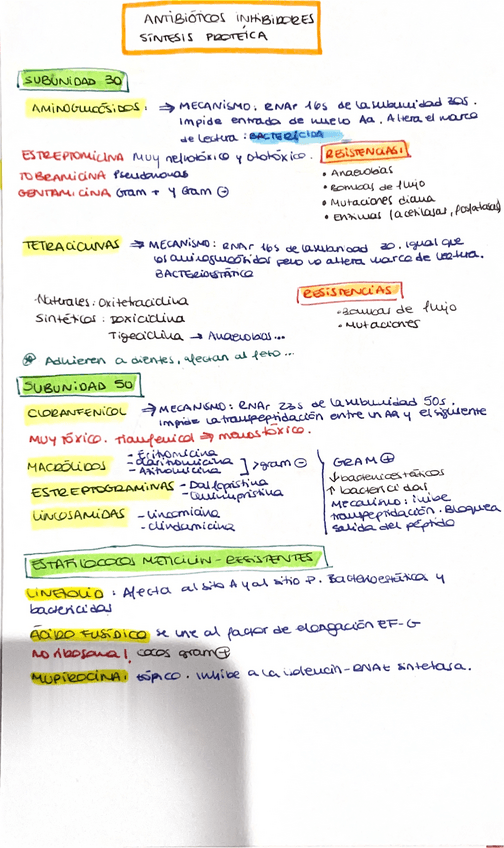 ANTIBIÓTICOS INHIBIDORES
SÍNTESIS PROTÉICA
SUBUNIDAD 30
AMINOGLUCÓSIDOS: ⇒ MECANISMO: RNAr 16s de la subunidad 30s.
Impide entrada de nuevo Aa. Altera el marco
de lectura: BACTERICIDA
ESTREPTOMICINA Muy nefrotóxico y ototóxico.
TOBRAMICINA Pseudomonas
GENTAMICINA Gram + y Gram ⊖
RESISTENCIAS:
• Anaerobias
• Bombas de flujo
• Mutaciones diana
• Enzimas (acetilasas, fosfatasas)
TETRACICLINAS ⇒ MECANISMO: RNAr 16s de la subunidad 30. Igual que
los aminoglucósidos pero no altera marco de lectura.
BACTERIOSTÁTICO
Naturales: Oxitetraciclina
Sintéticos: Doxiciclina
Tigeciclina → Anaerobios...
RESISTENCIAS
• Bombas de flujo
• Mutaciones
Adhieren a dientes, afectan al feto...
SUBUNIDAD 50
CLORANFENICOL ⇒ MECANISMO: RNAr 23s de la subunidad 50s.
Impide la transpeptidación entre un AA y el siguiente
MUY TÓXICO. Tianfenicol ⇒ menos tóxico.
MACRÓLIDOS - Eritromicina
- Claritromicina
- Azitromicina
> gram ⊖
ESTREPTOGRAMINAS - Dalfopristina
- Quinupristina
LINCOSAMIDAS - Lincomicina
- Clindamicina
GRAM ⊕
↓ bacteriostáticos
↑ bactericidas
Mecanismo: inhibe
transpeptidación. Bloquea
salida del péptido
ESTAFILOCOCOS METICILIN-RESISTENTES
LINEZOLID: Afecta al sitio A y al sitio P. Bacteriostáticos y
bactericidas
ÁCIDO FUSÍDICO se une al factor de elongación EF-G
NO ribosoma! cocos gram ⊕
MUPIROCINA: tópico. Inhibe a la isoleucin-RNAt sintetasa.